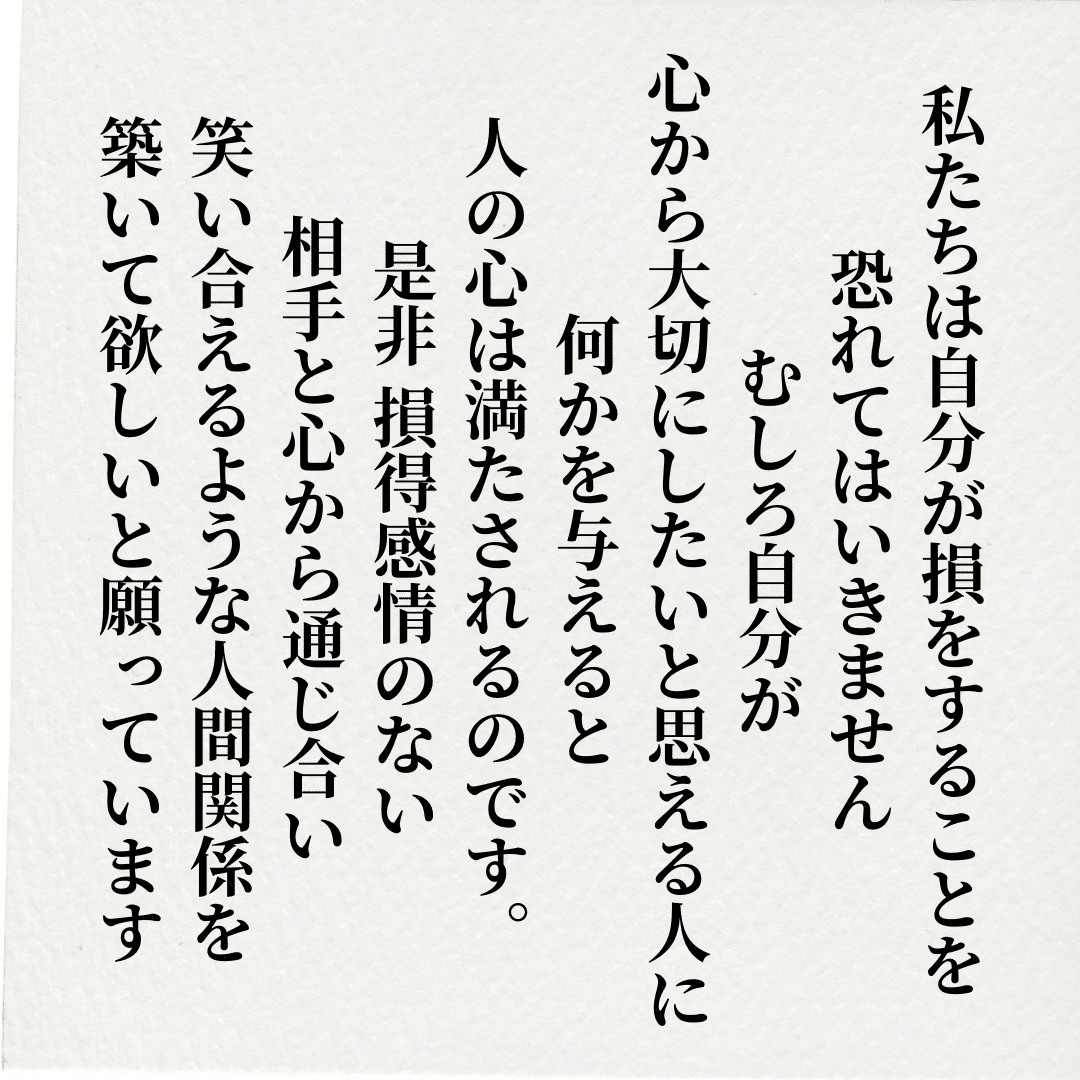 私たちは自分が損をすることを
恐れてはいきません
むしろ自分が
心から大切にしたいと思える人に
何かを与えると
人の心は満たされるのです。
是非 損得感情のない
相手と心から通じ合い
笑い合えるような人間関係を
築いて欲しいと願っています